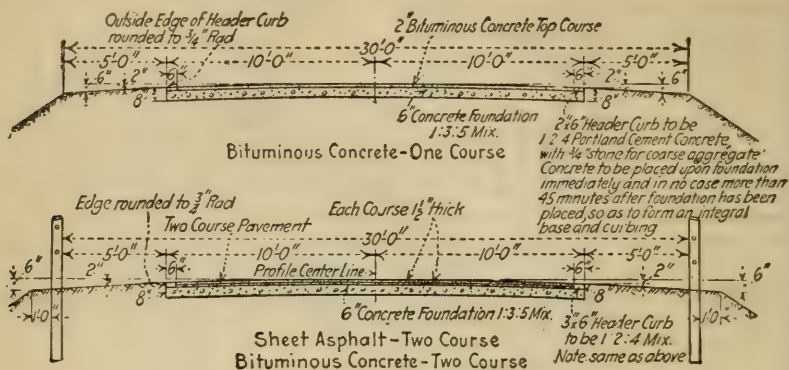 Outside Edge of Header Curb
rounded to 3/4" Rad
2" Bituminous Concrete Top Course
30'-0"
5'-0" 10'-0" 10'-0" 5'-0"
6" 2" 6" 6" 2" 6"
8" 8"
6" Concrete Foundation
1:3:5 Mix.
2"x6" Header Curb to be
1:2:4 Portland Cement Concrete,
with 3/4" stone for coarse aggregate
Concrete to be placed upon foundation
immediately and in no case more than
45 minutes after foundation has been
placed, so as to form an integral
base and curbing
Bituminous Concrete-One Course
Edge rounded to 3/4" Rad
Two Course Pavement
Each Course 1 1/2" thick
30'-0"
5'-0" 10'-0" 10'-0" 5'-0"
6" 2" 6" Profile Center Line 6" 2" 6"
8" 8"
1'-0" 1'-0"
6" Concrete Foundation 1:3:5 Mix.
3"x6" Header Curb
to be 1:2:4 Mix.
Note same as above
Sheet Asphalt-Two Course
Bituminous Concrete-Two Course